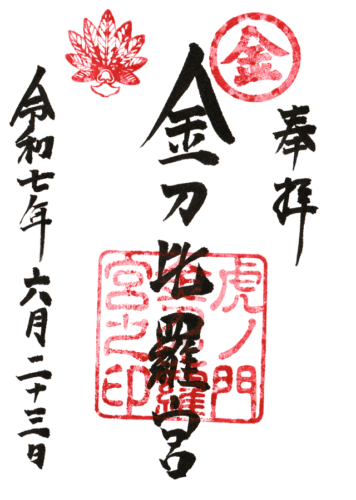 奉拝
金
金刀比羅宮
虎ノ門
金刀比羅
宮之印
令和七年六月二十三日